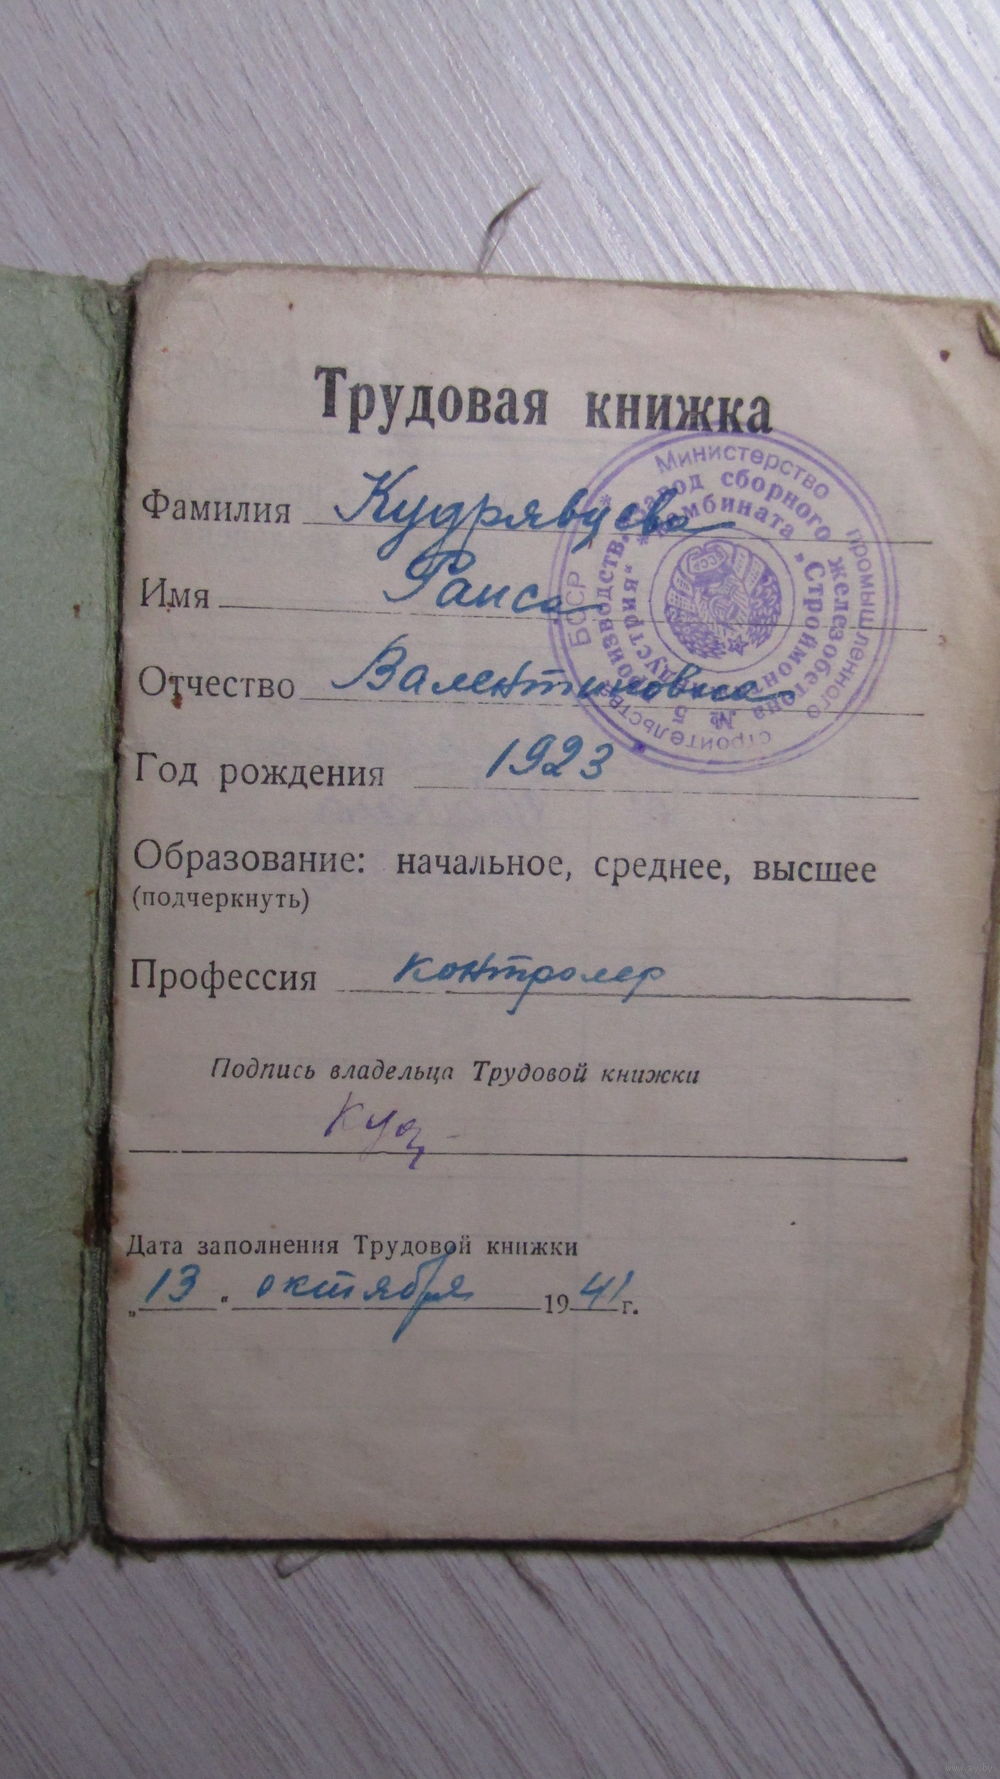 Трудовая книжка
Фамилия Кудрявцева
Имя Раиса
Отчество Валентиновна
Год рождения 1923
Образование: начальное, среднее, высшее
(подчеркнуть)
Профессия контролер
Подпись владельца Трудовой книжки
Куд
Дата заполнения Трудовой книжки
„13" октября 1941 г.
БССР * Министерство промышленного строительства *
Завод сборного железобетона № 5
* комбината „Строймонтажиндустрия" *
СССР